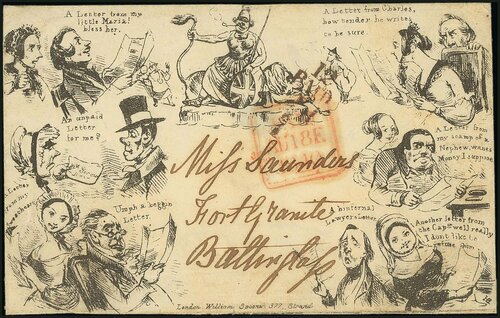 A Letter from my
little Maria!
bless her.
A Letter from Charles,
how tender he writes
to be sure.
An unpaid
Letter
for me?
A Letter from
my scamp of a
Nephew, wants
Money I suppose
A Letter
from my
Sweetheart
Umph a beggin
Letter.
infernal
Lawyers Letter
Another letter from
the Captn well really
I dont like to
refuse him
Miss Saunders
Fort Granite
Baltinglass
London William Spooner 377, Strand